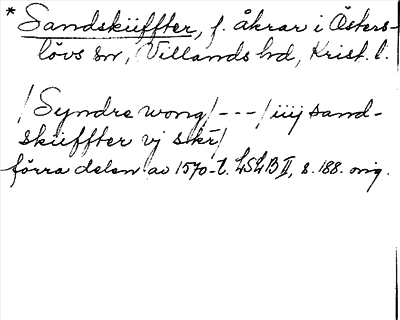 * Sandskiiffter, f. åkrar i Östers-
lövs sn, Villands hd, Krist. l.
/Syndre wong/ --- / iiij sand-
skiiffter vj skr̄/
förra delen av 1570-t. LSLB II, s. 188. orig.